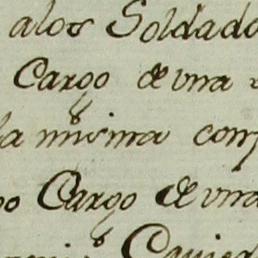 alos Soldado
Cargo de una
la misma com
Cargo de una